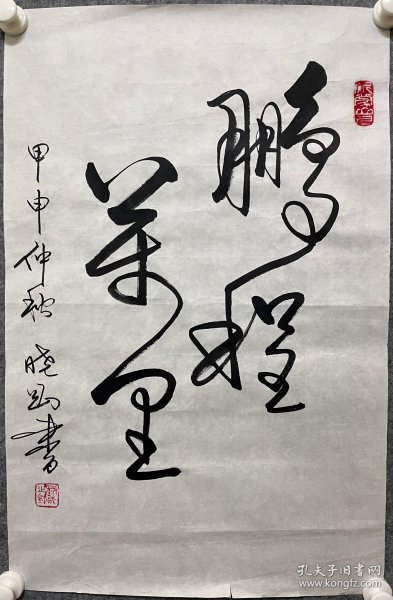 鹏程
萬里
甲申仲秋 晓
書
孔夫子旧书网
www.kongfz.com